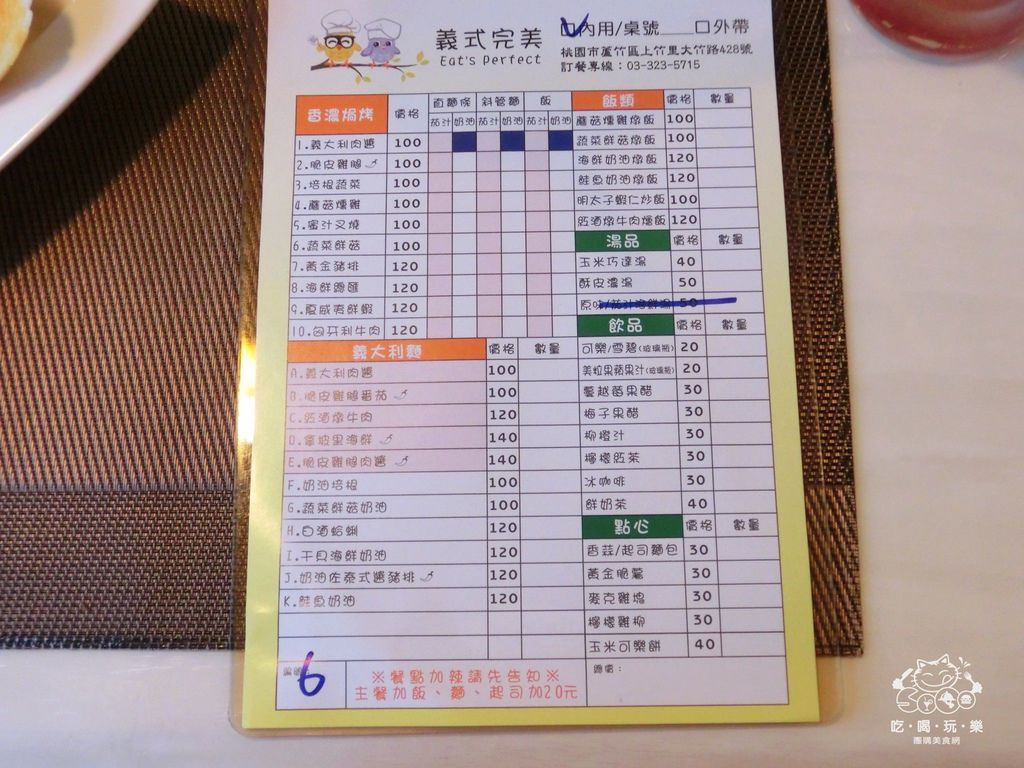 義式完美
Eat's Perfect
內用/桌號____ 囗外帶
桃園市蘆竹區上竹里大竹路428號
訂餐專線：03-323-5715
香濃焗烤 價格 直麵條 斜管麵 飯
茄汁 奶油 茄汁 奶油 茄汁 奶油
1.義大利肉醬 100
2.脆皮雞腿 100
3.培根蔬菜 100
4.蘑菇燻雞 100
5.蜜汁叉燒 100
6.蔬菜鮮菇 100
7.黃金豬排 120
8.海鮮鍋匯 120
9.夏威夷鮮蝦 120
10.匈牙利牛肉 120
義大利麵 價格 數量
A.義大利肉醬 100
B.脆皮雞腿番茄 100
C.紅酒燉牛肉 120
D.拿坡里海鮮 140
E.脆皮雞腿肉醬 140
F.奶油培根 100
G.蔬菜鮮菇奶油 100
H.白酒蛤蜊 120
I.干貝海鮮奶油 120
J.奶油佐泰式醬豬排 120
K.鮭魚奶油 120
飯類 價格 數量
蘑菇燻雞燉飯 100
蔬菜鮮菇燉飯 100
海鮮奶油燉飯 120
鮭魚奶油燉飯 120
明太子蝦仁炒飯 100
紅酒燉牛肉燴飯 120
湯品 價格 數量
玉米巧達湯 40
酥皮濃湯 50
原味/茄汁海鮮湯 50
飲品 價格 數量
可樂/雪碧(玻璃瓶) 20
美粒果蘋果汁(玻璃瓶) 20
蔓越莓果醋 30
梅子果醋 30
柳橙汁 30
檸檬紅茶 30
冰咖啡 30
鮮奶茶 40
點心 價格 數量
香蒜/起司麵包 30
黃金脆薯 30
麥克雞塊 30
檸檬雞柳 30
玉米可樂餅 40
6
※餐點加辣請先告知※
主餐加飯、麵、起司加20元
總價：
吃·喝·玩·樂
團購美食網